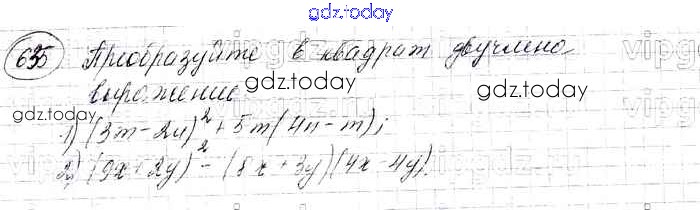 gdz.today
635 Преобразуйте в квадрат двучлена
выражение
gdz.today gdz.today gdz.today
1) (3m - 2n)² + 5m(4n - m);
2) (9x + 2y)² - (8x + 3y)(4x - 4y).